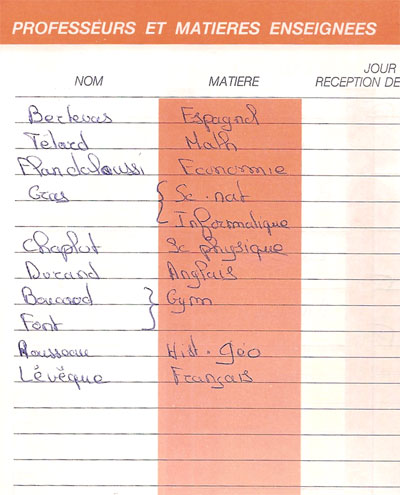 PROFESSEURS ET MATIERES ENSEIGNEES
JOUR
NOM MATIERE RECEPTION DE
Bectevas Espagnol
Télard Math
Elandaloussi Economie
Gras Sc. nat
Informatique
Chaplut Sc physique
Durand Anglais
Gym
Font
Rousseau Hist. géo
Lévêque Français